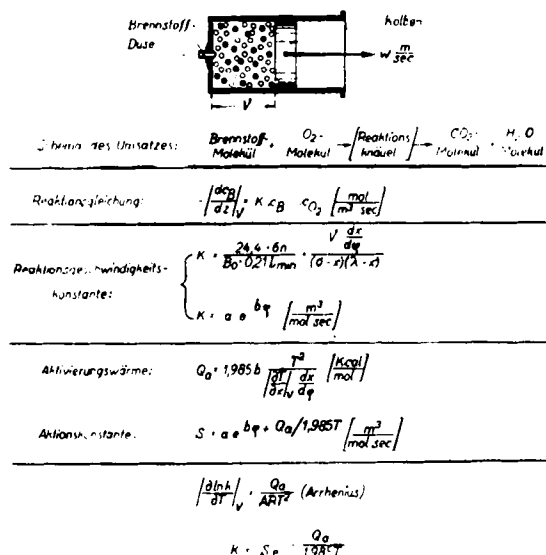 Brennstoff-
Düse
Kolben
w m/sec
V
Schema des Umsatzes: Brennstoff-Molekül + O2-Molekül → [Reaktions knäuel] → CO2-Molekül + H2O Molekül
Reaktionsgleichung: -|dcB/dz|V = K cB cO2 [mol/m³ sec]
Reaktionsgeschwindigkeits-
konstante:
K = 24,4 · 6n / B0 · 0,21 Lmin · V dx/dφ / (σ - x)(λ - x)
K = a e^bφ [m³/mol sec]
Aktivierungswärme: Qa = 1,985 b T² / |∂T/∂x|V dx/dφ [Kcal/mol]
Aktionskonstante: S = a e^bφ + Qa/1,985T [m³/mol sec]
|∂lnk/∂T|V = Qa/ART² (Arrhenius)
K = S e Qa/1,985T